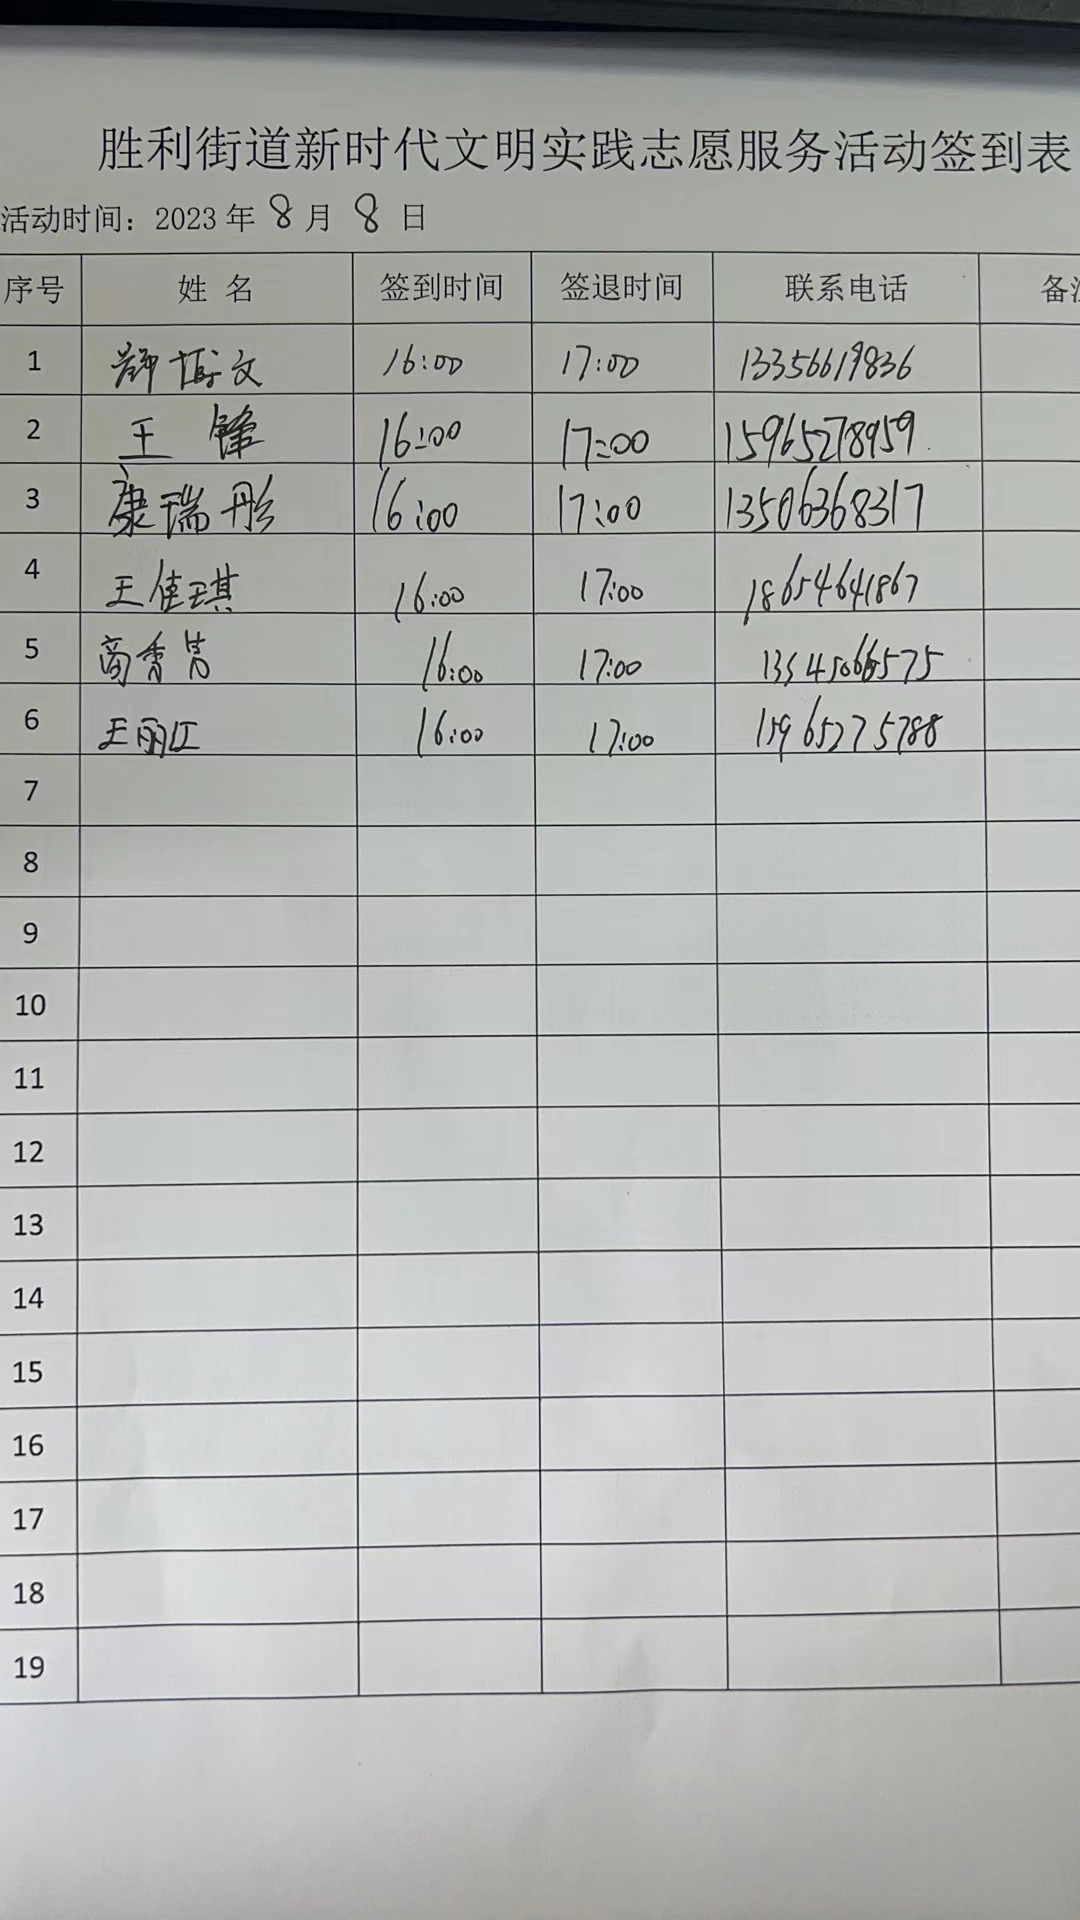 胜利街道新时代文明实践志愿服务活动签到表
活动时间：2023 年 8 月 8 日
序号 姓 名 签到时间 签退时间 联系电话 备注
1 博文 16:00 17:00 13356619836
2 王 锋 16:00 17:00 15965278959
3 康瑞彤 16:00 17:00 13506368317
4 王佳琪 16:00 17:00 18654641867
5 商秀芳 16:00 17:00
6 王丽江 16:00 17:00 15965275788
7
8
9
10
11
12
13
14
15
16
17
18
19